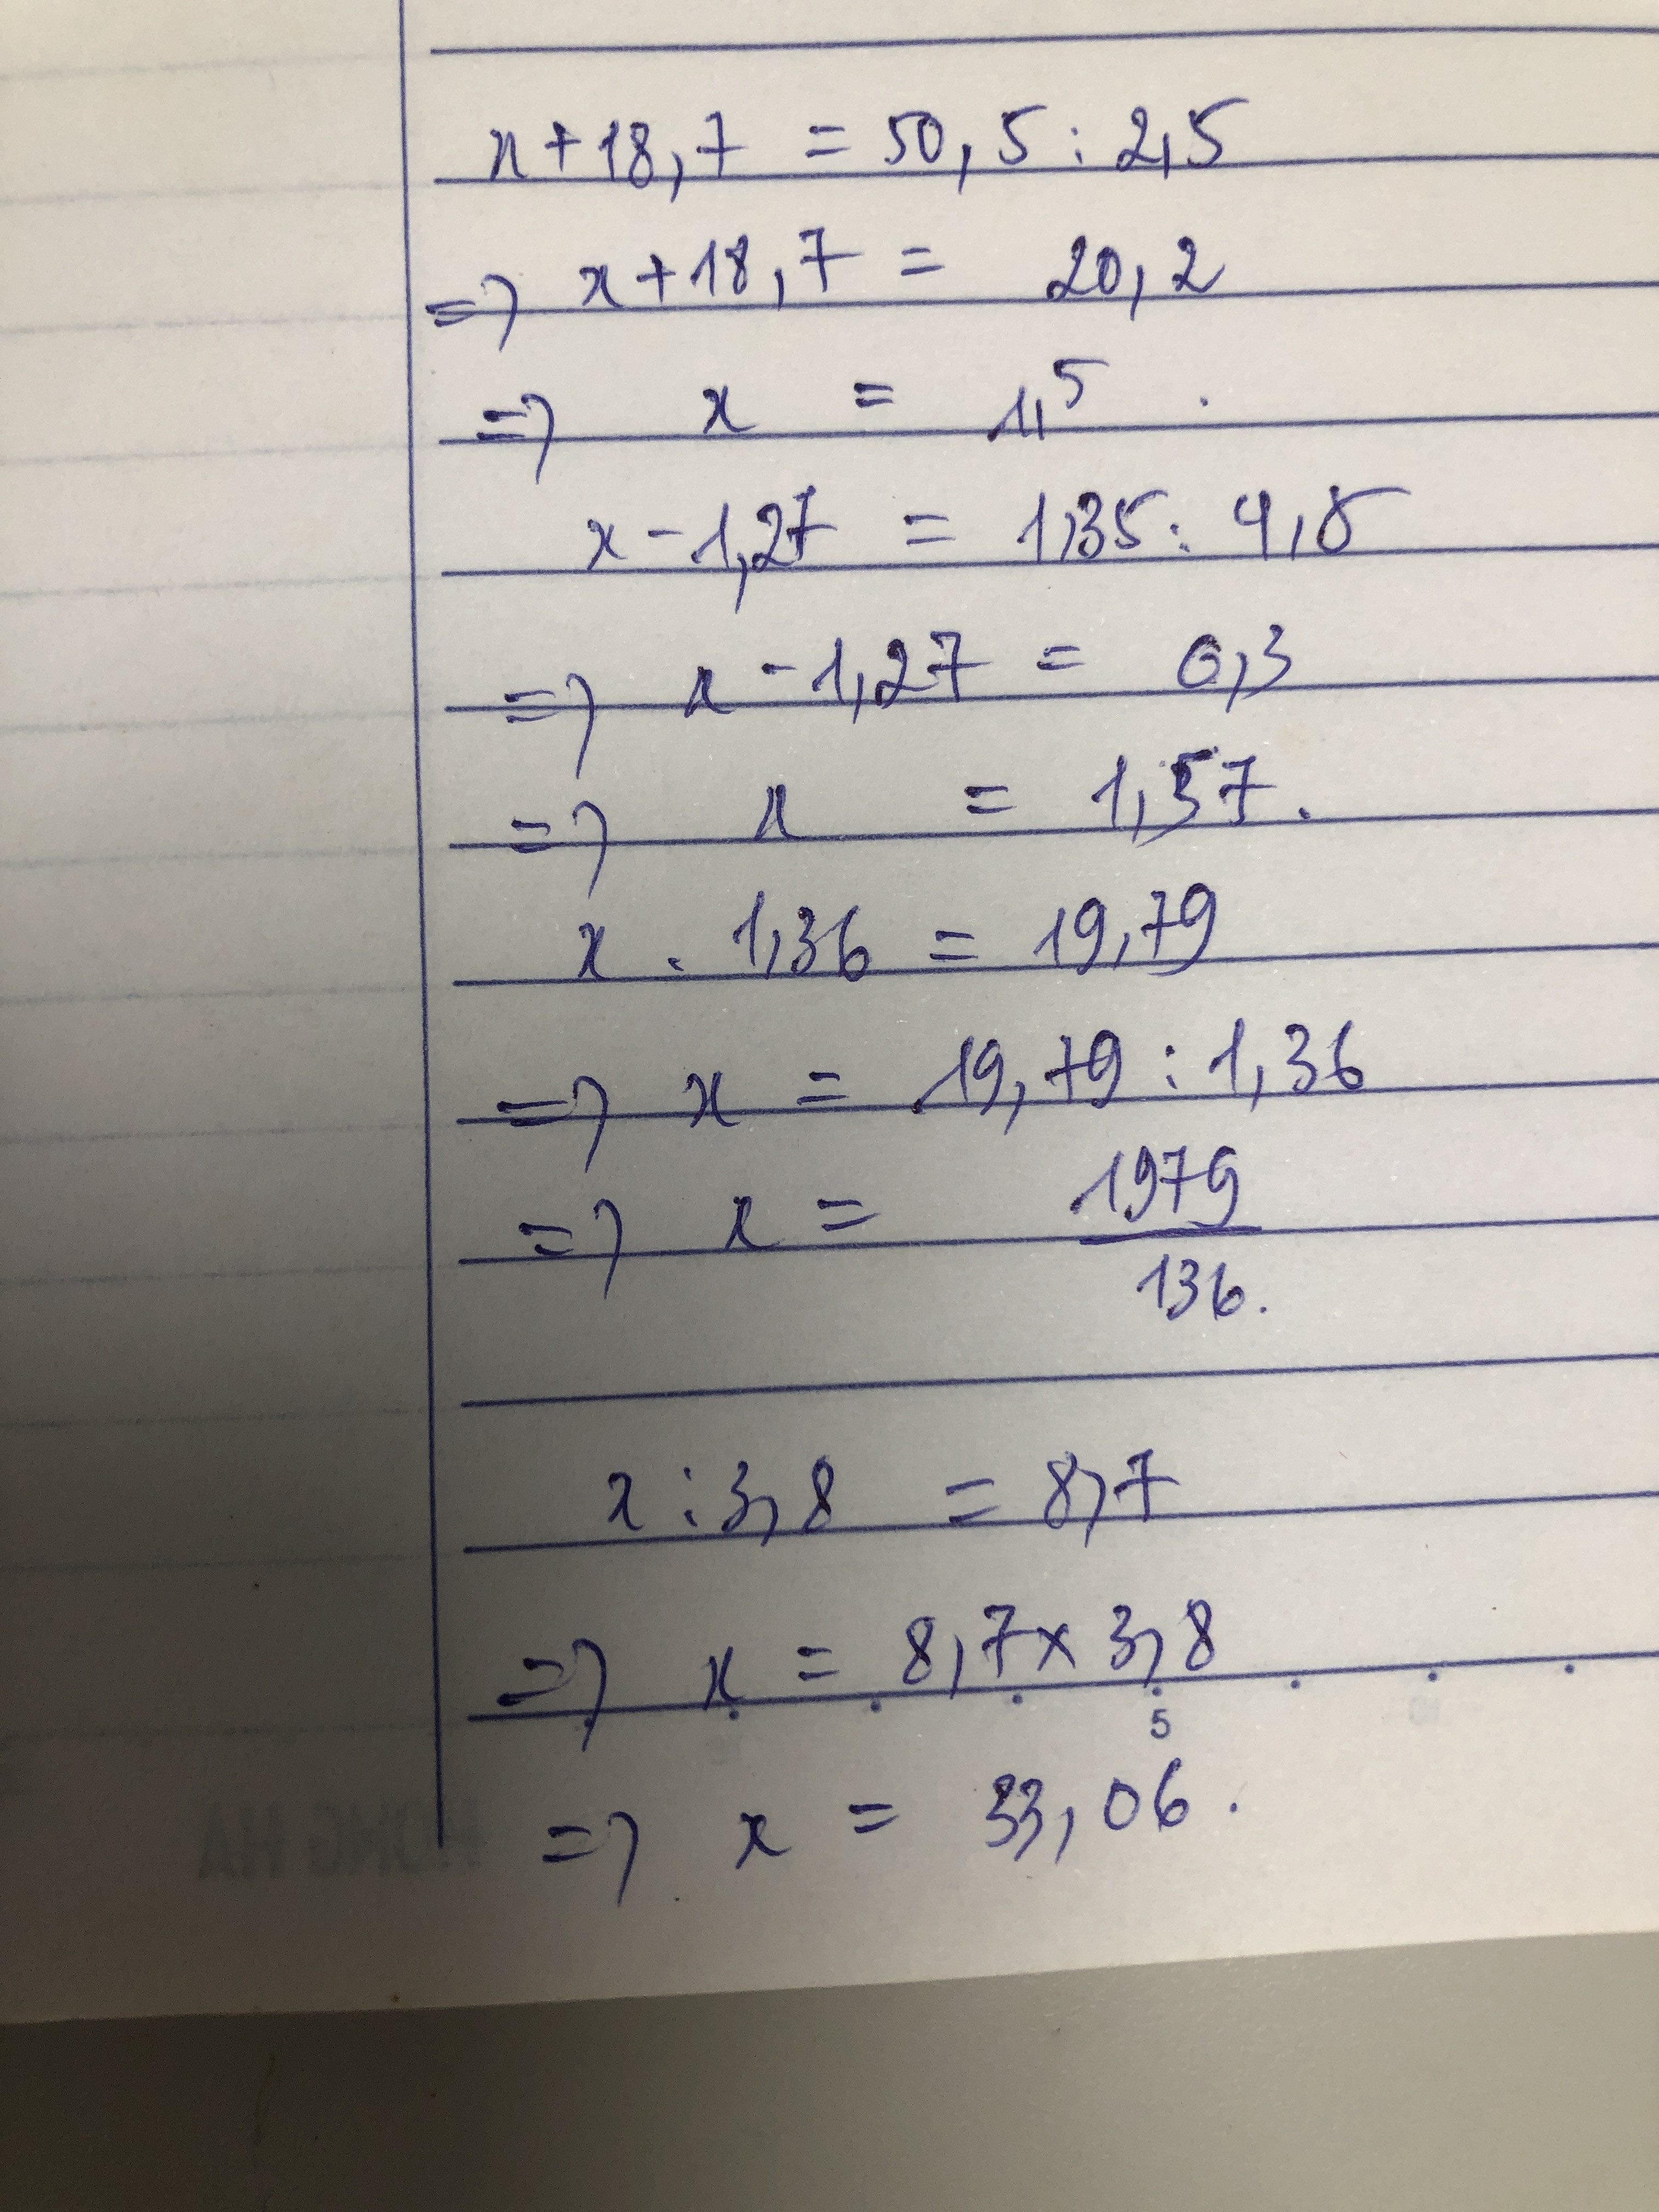 x + 18,7 = 50,5 : 2,5
=> x + 18,7 = 20,2
=> x = 1,5 .
x - 1,27 = 1,35 : 4,5
=> x - 1,27 = 0,3
=> x = 1,57 .
x . 1,36 = 19,79
=> x = 19,79 : 1,36
=> x = 1979
136 .
x : 3,8 = 8,7
=> x = 8,7 x 3,8
5
=> x = 33,06 .